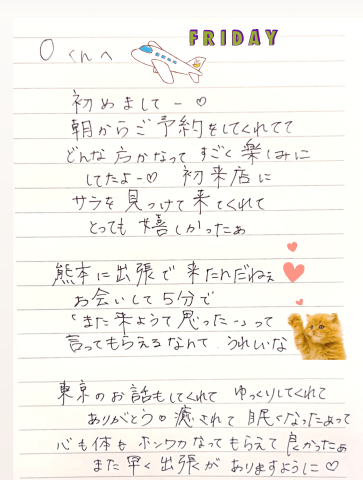 FRIDAY
Oくんへ
初めましてー♡
朝からご予約をしてくれてて
どんな方かなって すごく楽しみに
してたよー♡ 初来店に
サラを見つけて来てくれて
とっても嬉しかったぁ
熊本に出張で来たんだねぇ
お会いして5分で
「また来ようて思ったー」って
言ってもらえるなんて、うれしいな
東京のお話もしてくれて ゆっくりしてくれて
ありがとう。癒されて眠くなったあって
心も体もホンワカなってもらえて良かったぁ
また早く出張がありますように♡